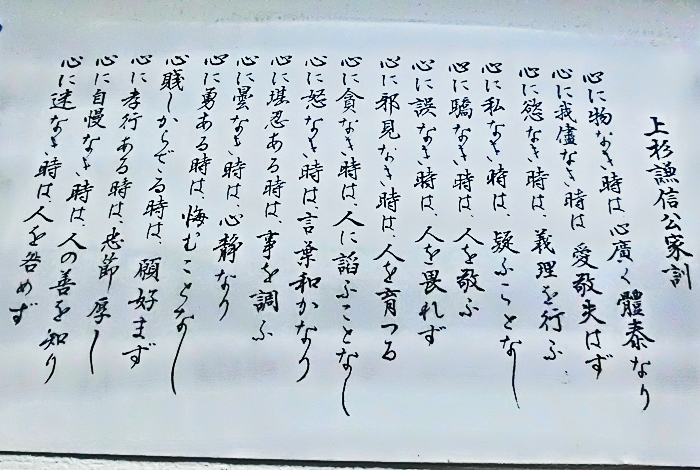 上杉謙信公家訓
心に物なき時は心廣く體泰なり
心に我儘なき時は愛敬失はず
心に慾なき時は、義理を行ふ、
心に私なき時は、疑ふことなし
心に驕なき時は、人を敬ふ
心に誤なき時は、人を畏れず
心に邪見なき時は、人を育つる
心に貪なき時は、人に諂ふことなし
心に怒なき時は、言葉和かなり
心に堪忍ある時は、事を調ふ
心に曇なき時は、心静なり
心に勇ある時は、悔むことなし
心賤しからざる時は、願好まず
心に孝行ある時は、忠節厚し
心に自慢なき時は、人の善を知り
心に迷なき時は、人を咎めず